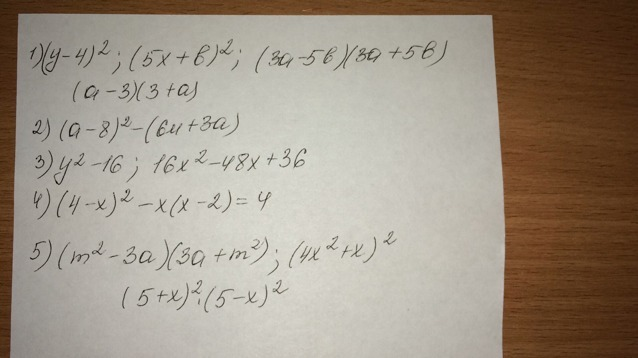 1) (y-4)²; (5x+b)²; (3a-5b)(3a+5b)
(a-3)(3+a)
2) (a-8)²-(64+3a)
3) y²-16; 16x²-48x+36
4) (4-x)²-x(x-2)=4
5) (m²-3a)(3a+m²); (4x²+x)²
(5+x)²·(5-x)²